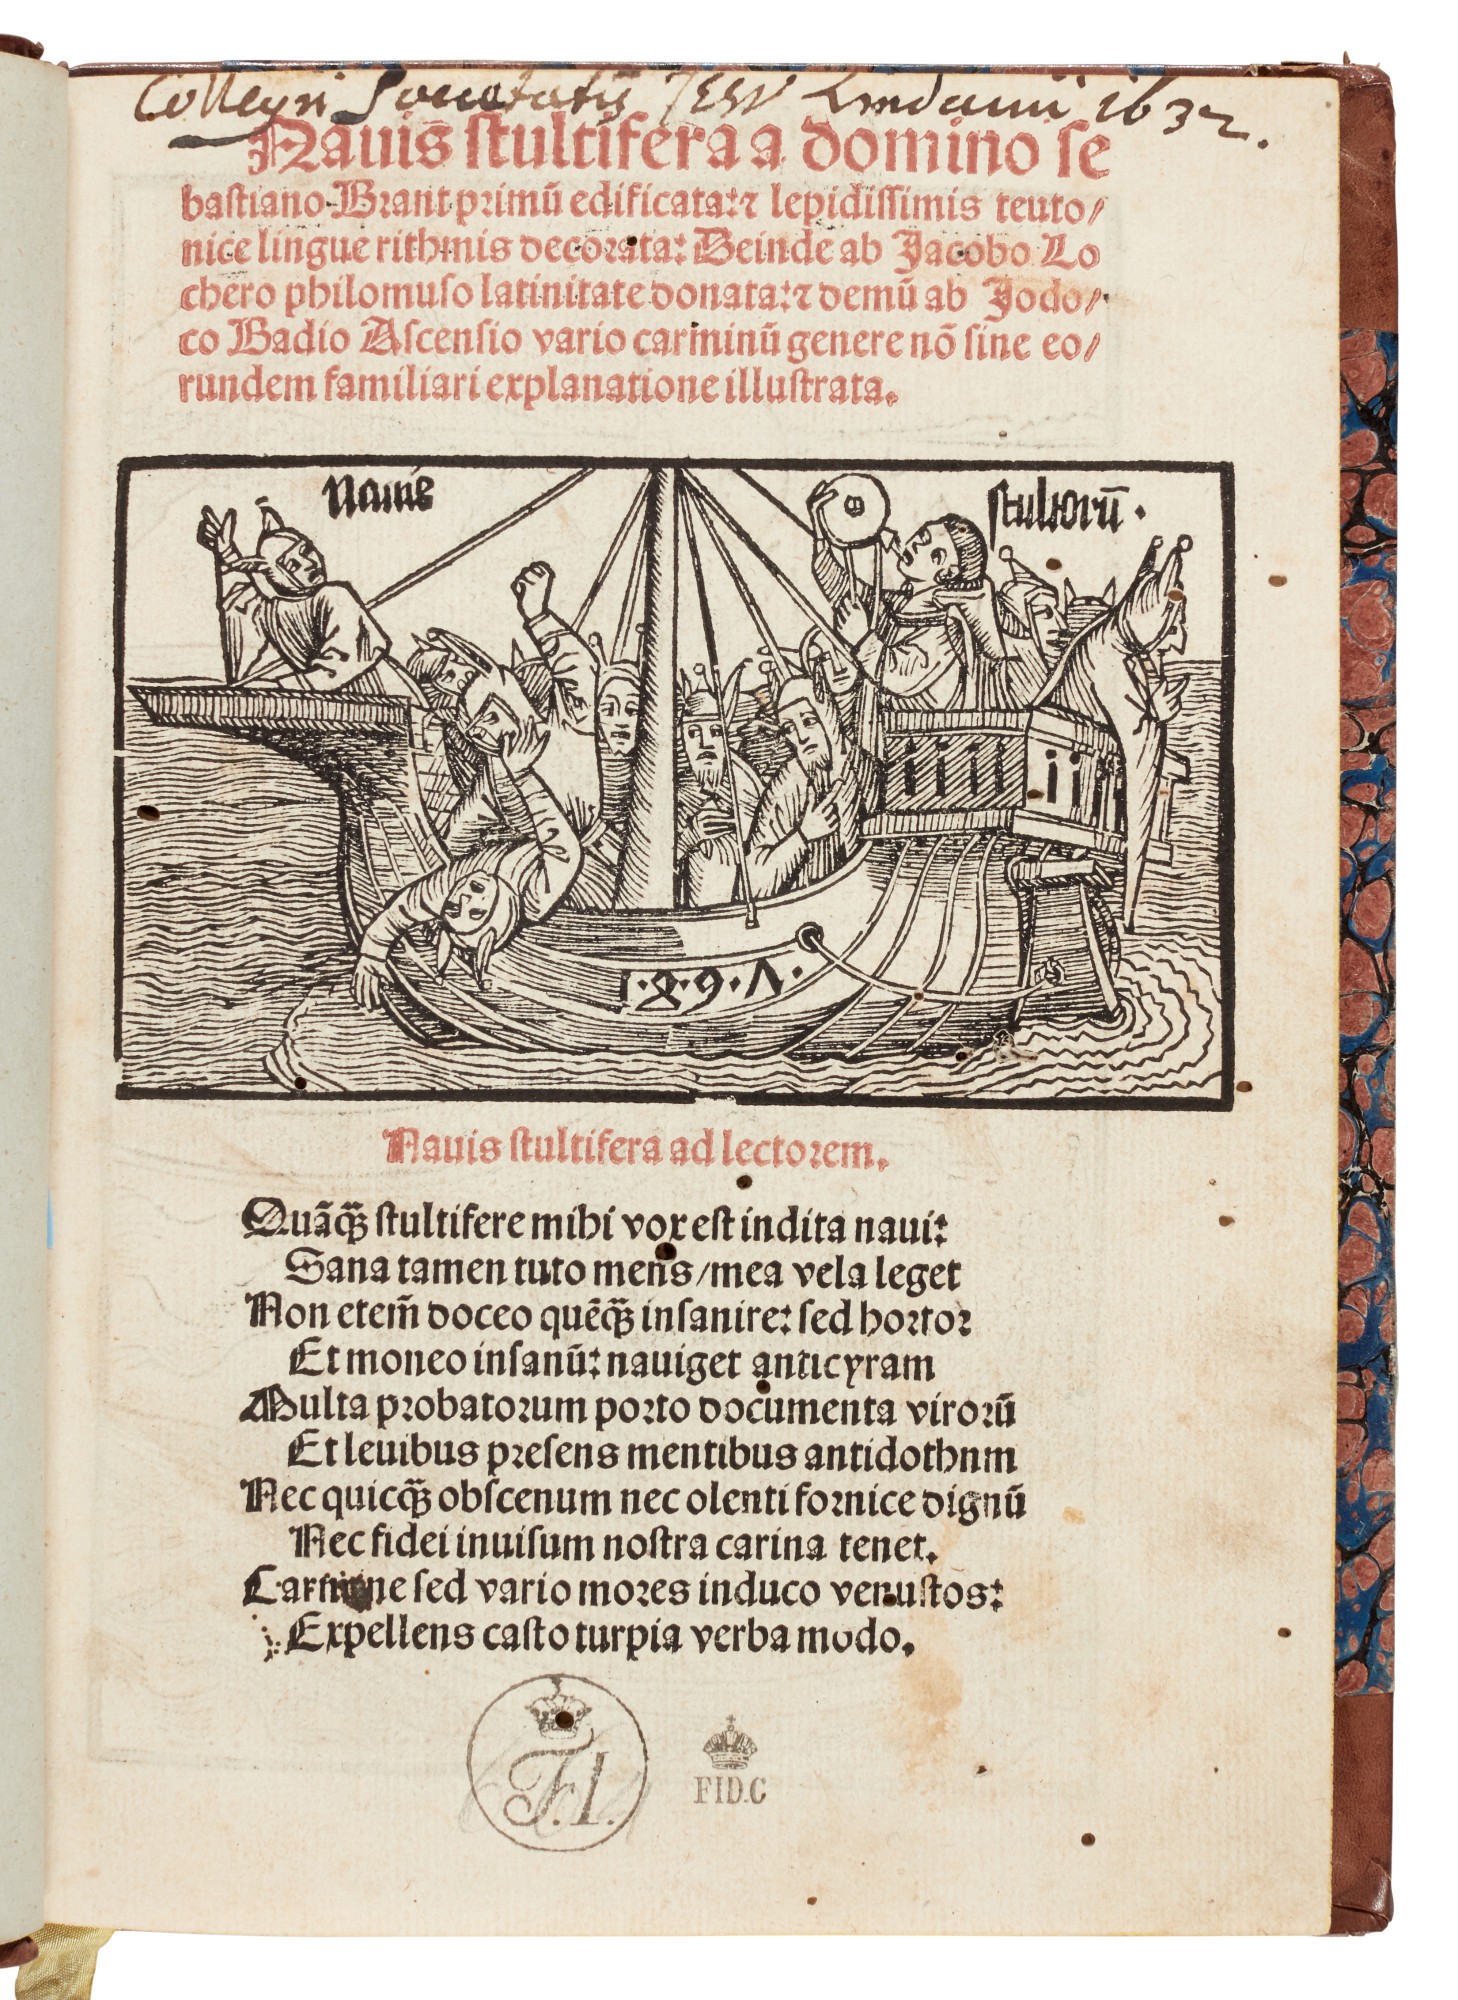 Collegii Societatis Jesu Lindauii 1632.
Nauis stultifera a domino se
bastiano Brant primū edificata: ⁊ lepidissimis teuto/
nice lingue rithmis decorata: Deinde ab Jacobo Lo
chero philomuso latinitate donata: ⁊ demū ab Jodo/
co Badio Ascensio vario carminū genere nō sine eo/
rundem familiari explanatione illustrata.
Nauis stultorū.
1.8.9.Λ.
Nauis stultifera ad lectorem.
Quāqꝫ stultifere mihi vox est indita naui:
Sana tamen tuto mens/mea vela leget
Non etem̄ doceo quēqꝫ insanire: sed hortor
Et moneo insanū: nauiget anticyram
Multa probatorum porto documenta virorū
Et leuibus presens mentibus antidothnm
Nec quicqꝫ obscenum nec olenti fornice dignū
Nec fidei inuisum nostra carina tenet.
Carmine sed vario mores induco venustos:
Expellens casto turpia verba modo.
F.I.
FID.C